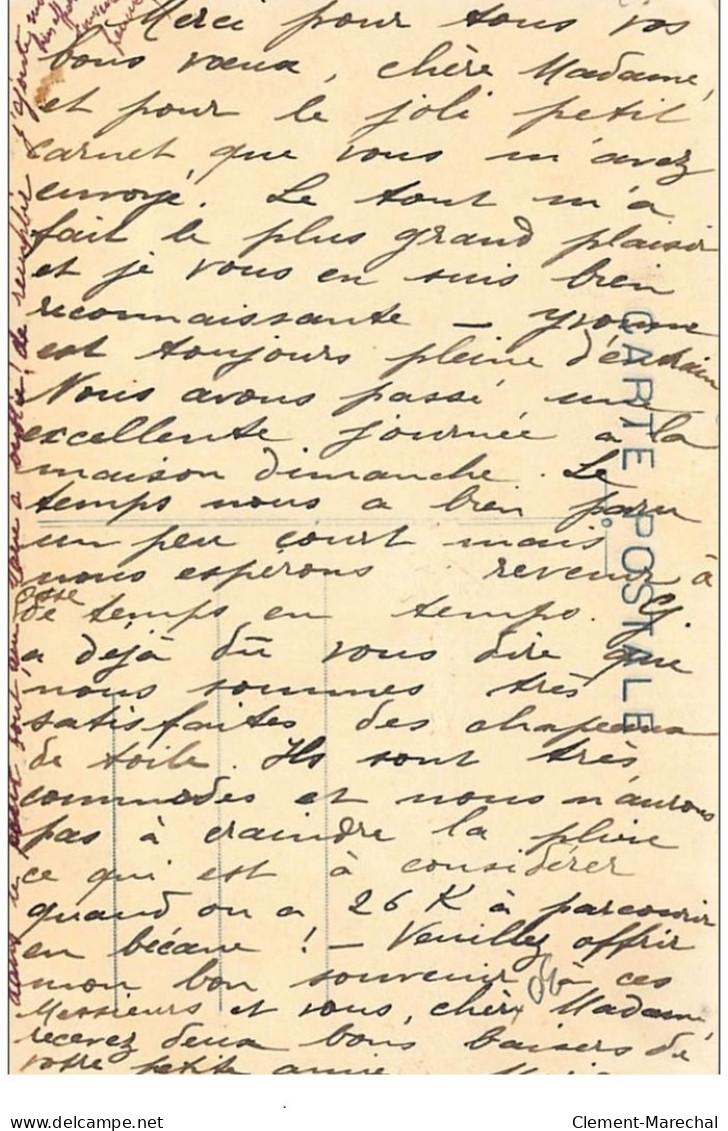 Merci pour tous vos
bons vœux, chère Madame,
et pour le joli petit
carnet que vous m'avez
envoyé. Le tout m'a
fait le plus grand plaisir
et je vous en suis bien
reconnaissante – Yvonne
est toujours pleine d'entrain
Nous avons passé une
excellente journée à la
maison dimanche. Le
temps nous a bien paru
un peu court mais
nous espérons revenir à
de temps en temps. G.
a déjà dû vous dire que
nous sommes très
satisfaites des chapeaux
de toile. Ils sont très
commodes et nous n'aurons
pas à craindre la pluie
ce qui est à considérer
quand on a 26 K à parcourir
en bécane ! – Veuillez offrir
mon bon souvenir à ces
Messieurs et vous, chère Madame,
recevez deux bons baisers de
votre petite amie
CARTE POSTALE
de remplir
j'ajoute
Clement-Marechal